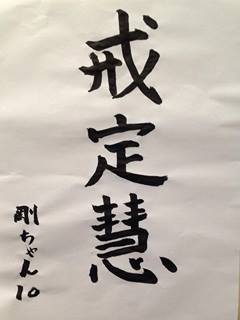 戒定慧
剛ちゃん10